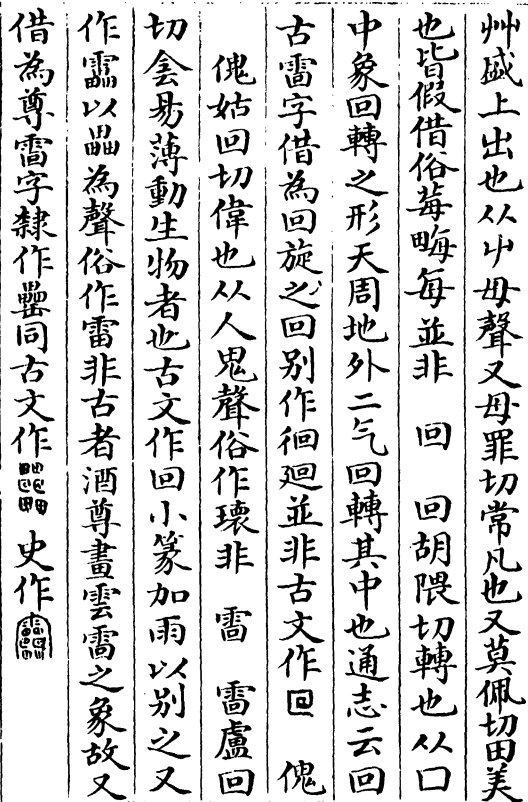 艸盛上出也从屮毋聲又母罪切常凡也又莫佩切田美
也皆假借俗莓畮每並非　回　回胡隈切轉也从囗
中象回轉之形天周地外二气回轉其中也通志云回
古雷字借為回旋之回别作徊廻並非古文作囘　傀
傀姑回切偉也从人鬼聲俗作瓌非　靁　靁盧回
切侌昜薄動生物者也古文作回小篆加雨以别之又
作靁以畾為聲俗作雷非古者酒尊畫雲靁之象故又
借為尊靁字隸作罍同古文作　史作